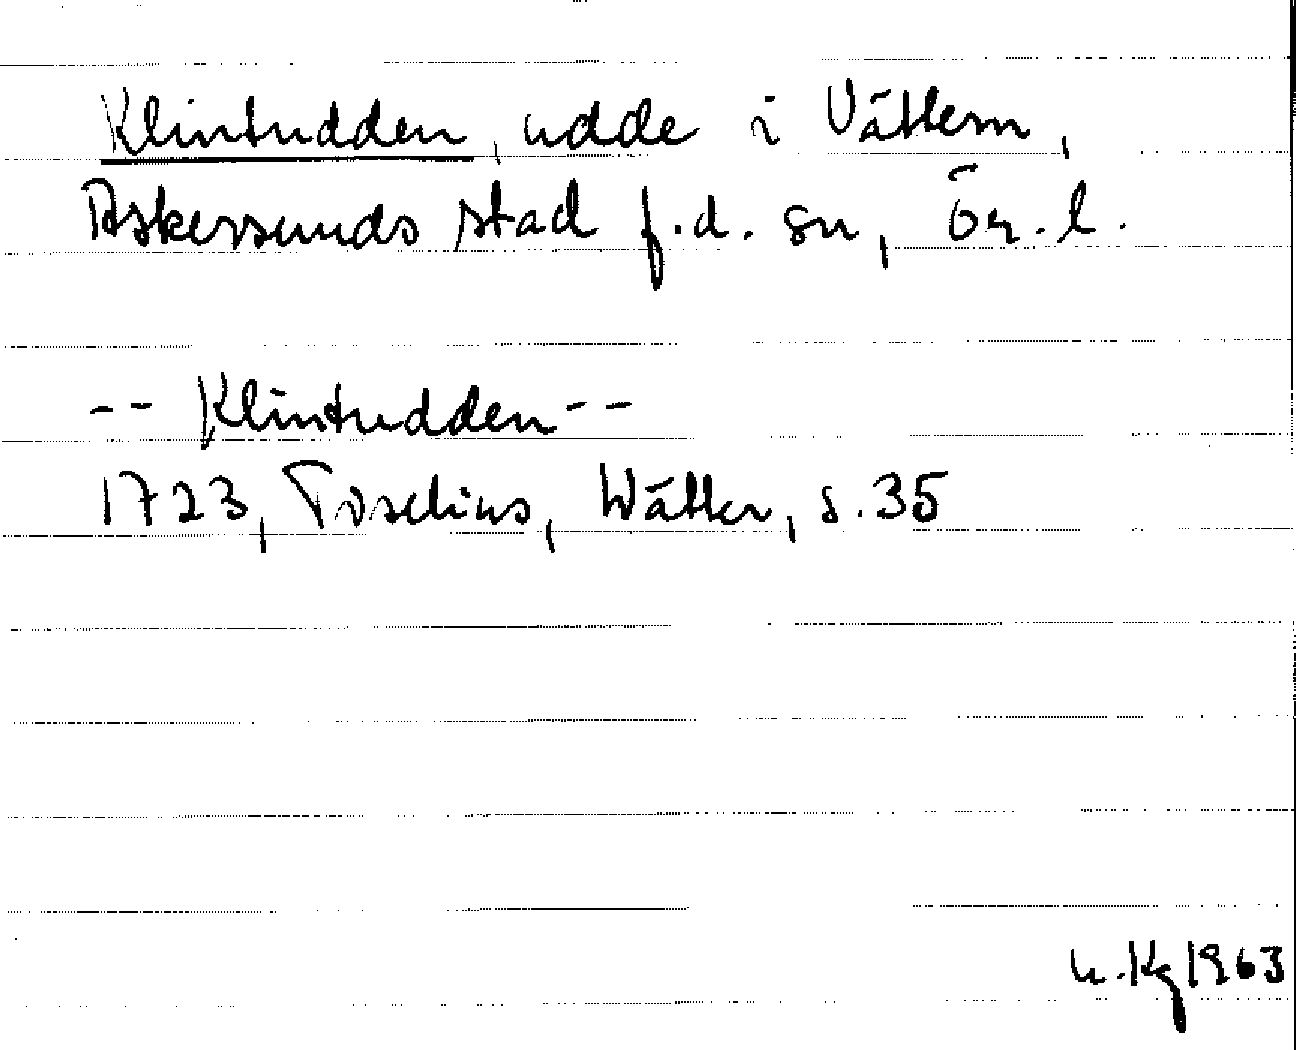 Klintudden, udde i Vättern,
Askersunds stad f.d. sn, Ör. l.
-- Klintudden --
1723, Toselius, Wätter, s. 35
Kg 1963